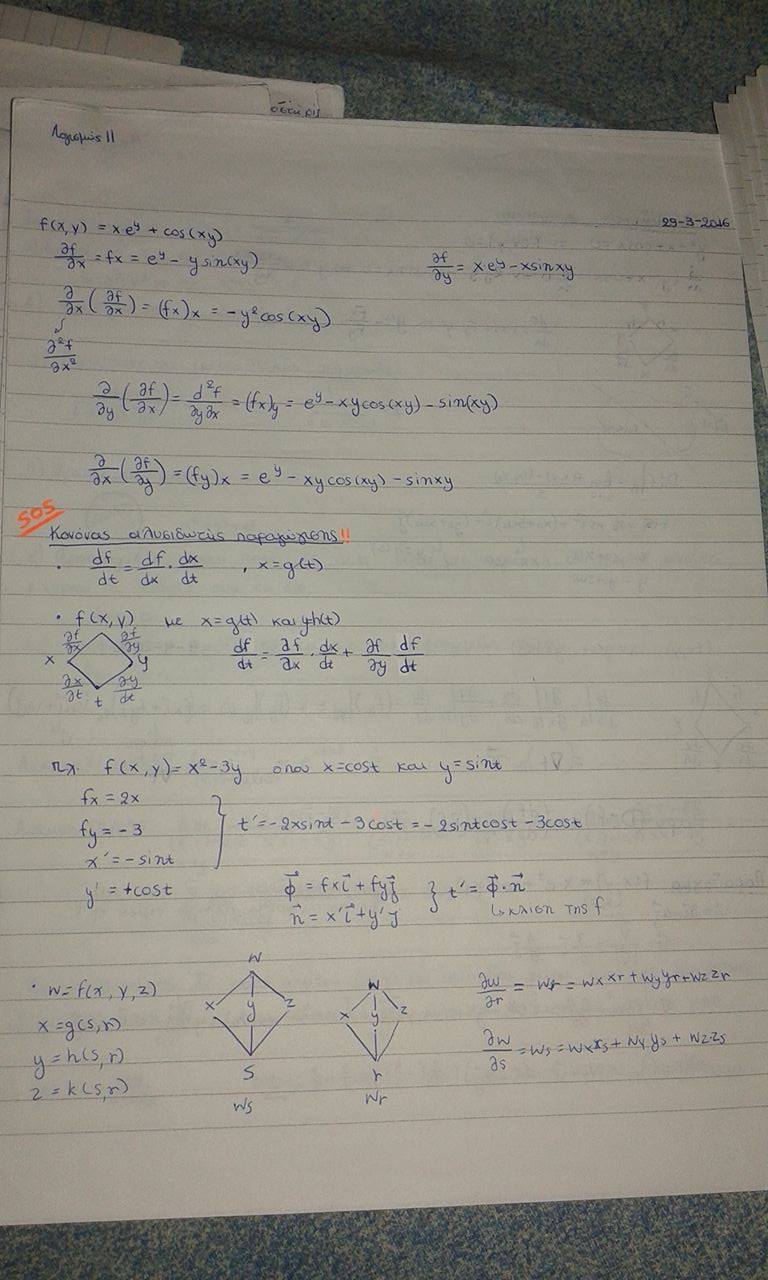 Λογισμός ΙΙ
29-3-2016
f(x,y) = x e^y + cos(xy)
∂f/∂x = fx = e^y - y sin(xy)    ∂f/∂y = x·e^y - x sin xy
∂/∂x (∂f/∂x) = (fx)x = -y² cos(xy)
∂²f/∂x²
∂/∂y (∂f/∂x) = d²f/∂y∂x = (fx)y = e^y - xy cos(xy) - sin(xy)
∂/∂x (∂f/∂y) = (fy)x = e^y - xy cos(xy) - sin xy
SOS
Κανόνας αλυσιδωτής παραγώγισης!!
· df/dt = df/dx · dx/dt , x=g(t)
· f(x,y) με x=g(t) και y=h(t)
∂f/∂x ∂f/∂y
x y
∂x/∂t ∂y/dt
t
df/dt = ∂f/∂x · dx/dt + ∂f/∂y df/dt
π.χ. f(x,y) = x²-3y όπου x=cost και y=sint
fx = 2x
fy = -3
x' = -sint
y' = +cost
t' = -2xsint - 3cost = -2sintcost - 3cost
φ⃗ = fx i⃗ + fy j⃗
n⃗ = x' i⃗ + y' j
t' = φ⃗·n⃗
↳ κλιση της f
· w = f(x,y,z)
x = g(s,r)
y = h(s,r)
z = k(s,r)
w
x y z
s
ws
w
x y z
r
wr
∂w/∂r = wr = wx xr + wy yr + wz zr
∂w/∂s = ws = wx xs + wy ys + wz·zs